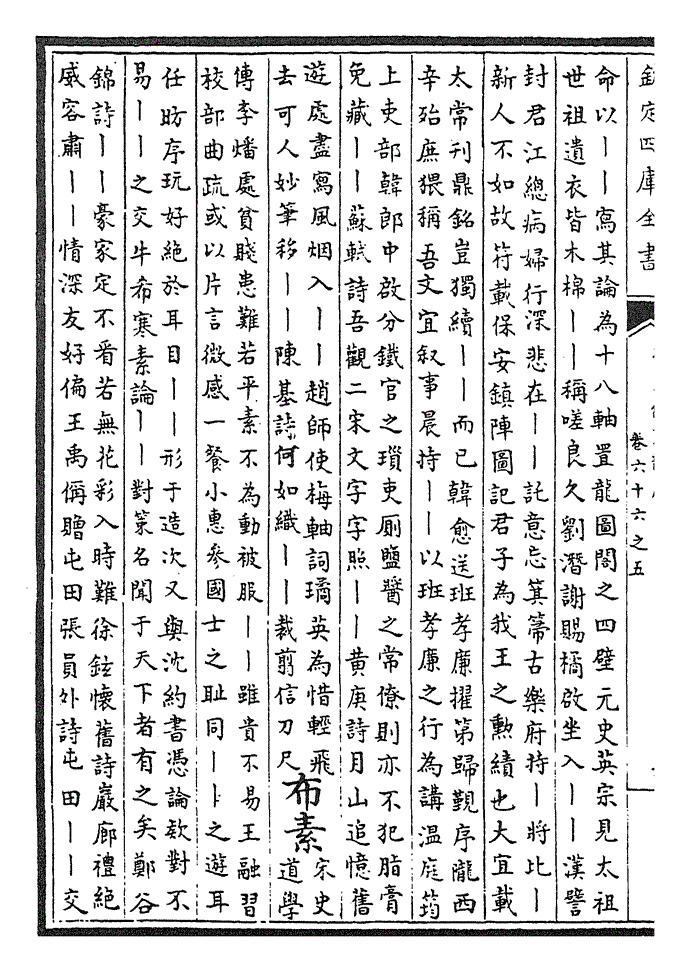 欽定四庫全書
卷六十六之五
命以｜｜寫其論為十八軸置龍圖閣之四壁元史英宗見太祖
世祖遺衣皆木棉｜｜稱嗟良久劉潛謝賜橘啟坐入｜｜漢譬
封君江總病婦行深悲在｜｜託意忘箕箒古樂府持｜將比｜
新人不如故符載保安鎮陣圖記君子為我王之勲績也大宜載
太常刊鼎銘豈獨續｜｜而已韓愈送班孝廉擢第歸覲序隴西
辛殆庶猥稱吾文宜叙事晨持｜｜以班孝廉之行為講溫庭筠
上吏部韓郎中啟分鐵官之瑣吏厠鹽醬之常僚則亦不犯脂膏
免藏｜｜蘇軾詩吾觀二宋文字字照｜｜黄庚詩月山追憶舊
遊處盡寫風烟入｜｜趙師使梅軸詞璚英為惜輕飛
去可人妙筆移｜｜陳基詩何如織｜｜裁剪信刀尺
布素
宋史
道學
傳李燔處貧賤患難若平素不為動被服｜｜雖貴不易王融習
校部曲疏或以片言微感一餐小惠參國士之恥同｜｜之遊耳
任昉序玩好絶於耳目｜｜形于造次又與沈約書憑論欵對不
易｜｜之交牛希寒素論｜｜對策名聞于天下者有之矣鄭谷
錦詩｜｜豪家定不看若無花彩入時難徐鉉懷舊詩巖廊禮絶
威容肅｜｜情深友好偏王禹偁贈屯田張員外詩屯田｜｜交